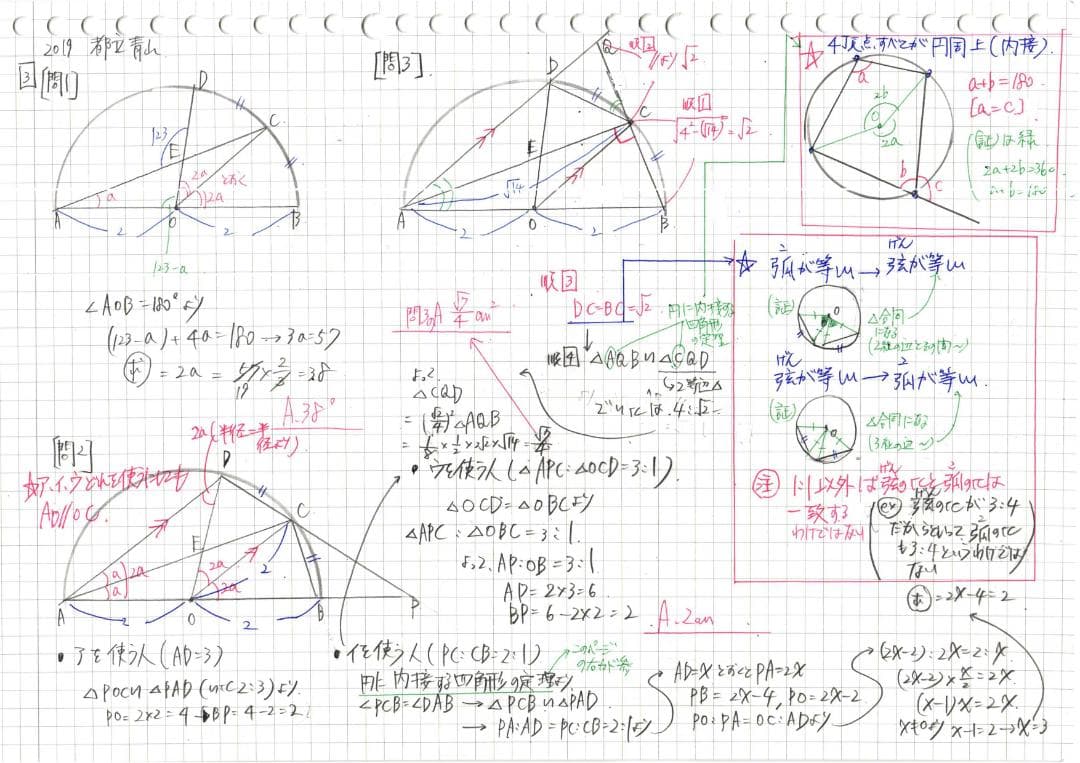 2019 都立青山
3 [問1]
D
C
123
E
2a とおく
a
2a
A
O
B
2
2
123-a
∠AOB=180°より
(123-a)+4a=180→3a=57
求=2a=57×2/3=38
19
A.38°
[問3]
Q
順2
//より√2
D
C
順1
√4²-(√14)²=√2
E
√14
A
O
B
2
2
☆ 4頂点すべてが円周上(内接).
a
2b
O
2a
b
c
a+b=180
[a=c]
(証)は緑
2a+2b=360
☆ 弧が等しい→弦が等しい
こ
げん
(証)
O
△合同
になる
弦が等しい→弧が等しい.
げん
こ
(証)
O
△合同になる
(3組の辺~)
注 1:1以外は弦の比と弧の比は
げん
こ
一致する
わけではない
ex 弦の比が3:4
げん
だからといって弧の比
こ
も3:4というわけでは
ない
順3
DC=BC=√2
円に内接する
四角形
の定理
順4 △AQB∽△CQD
→2等辺△
問3のA √7/4 cm²
よって
△CQD
=(√2/4)²△AQB
=1/8×1/2×2√2×√14=√7/4
[問2]
2a(半径=半
径より)
☆ア,イ,ウどれを使うにしても
AD//OC.
D
C
E
a
a
2a
2a
2a
2
A
O
B
P
2
2
・アを使う人(AD=3)
△POC∽△PAD(∽比2:3)より
PO=2×2=4→BP=4-2=2
・ウを使う人(△APC:△OCD=3:1)
△OCD=△OBCより
△APC:△OBC=3:1.
よって.AP:OB=3:1.
AP=2×3=6
BP=6-2×2=2
A.2cm
・イを使う人(PC:CB=2:1)
このページ
円に内接する四角形の定理より
∠PCB=∠DAB→△PCB∽△PAD
→PA:AD=PC:CB=2:1より
AD=xとおくとPA=2x
PB=2x-4,PO=2x-2
PO:PA=OC:ADより
(2x-2):2x=2:x
(2x-2)×x/2=2x
(x-1)x=2x
x≠0より x-1=2→x=3
求=2x-4=2